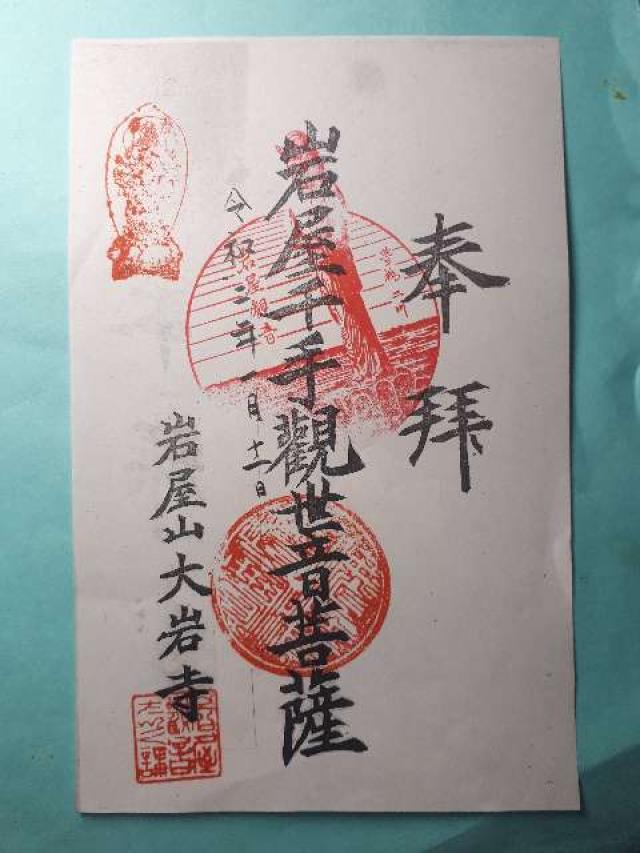 奉拝
岩屋千手觀世音菩薩
令和三年一月十二日
岩屋観音
岩屋山大岩寺